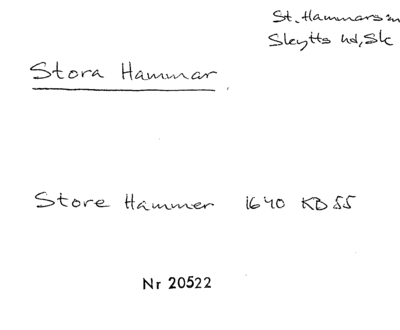 St. Hammars sn
Skytts hd, Sk
Stora Hammar.
Store Hammer 1640 KB 55
Nr 20522